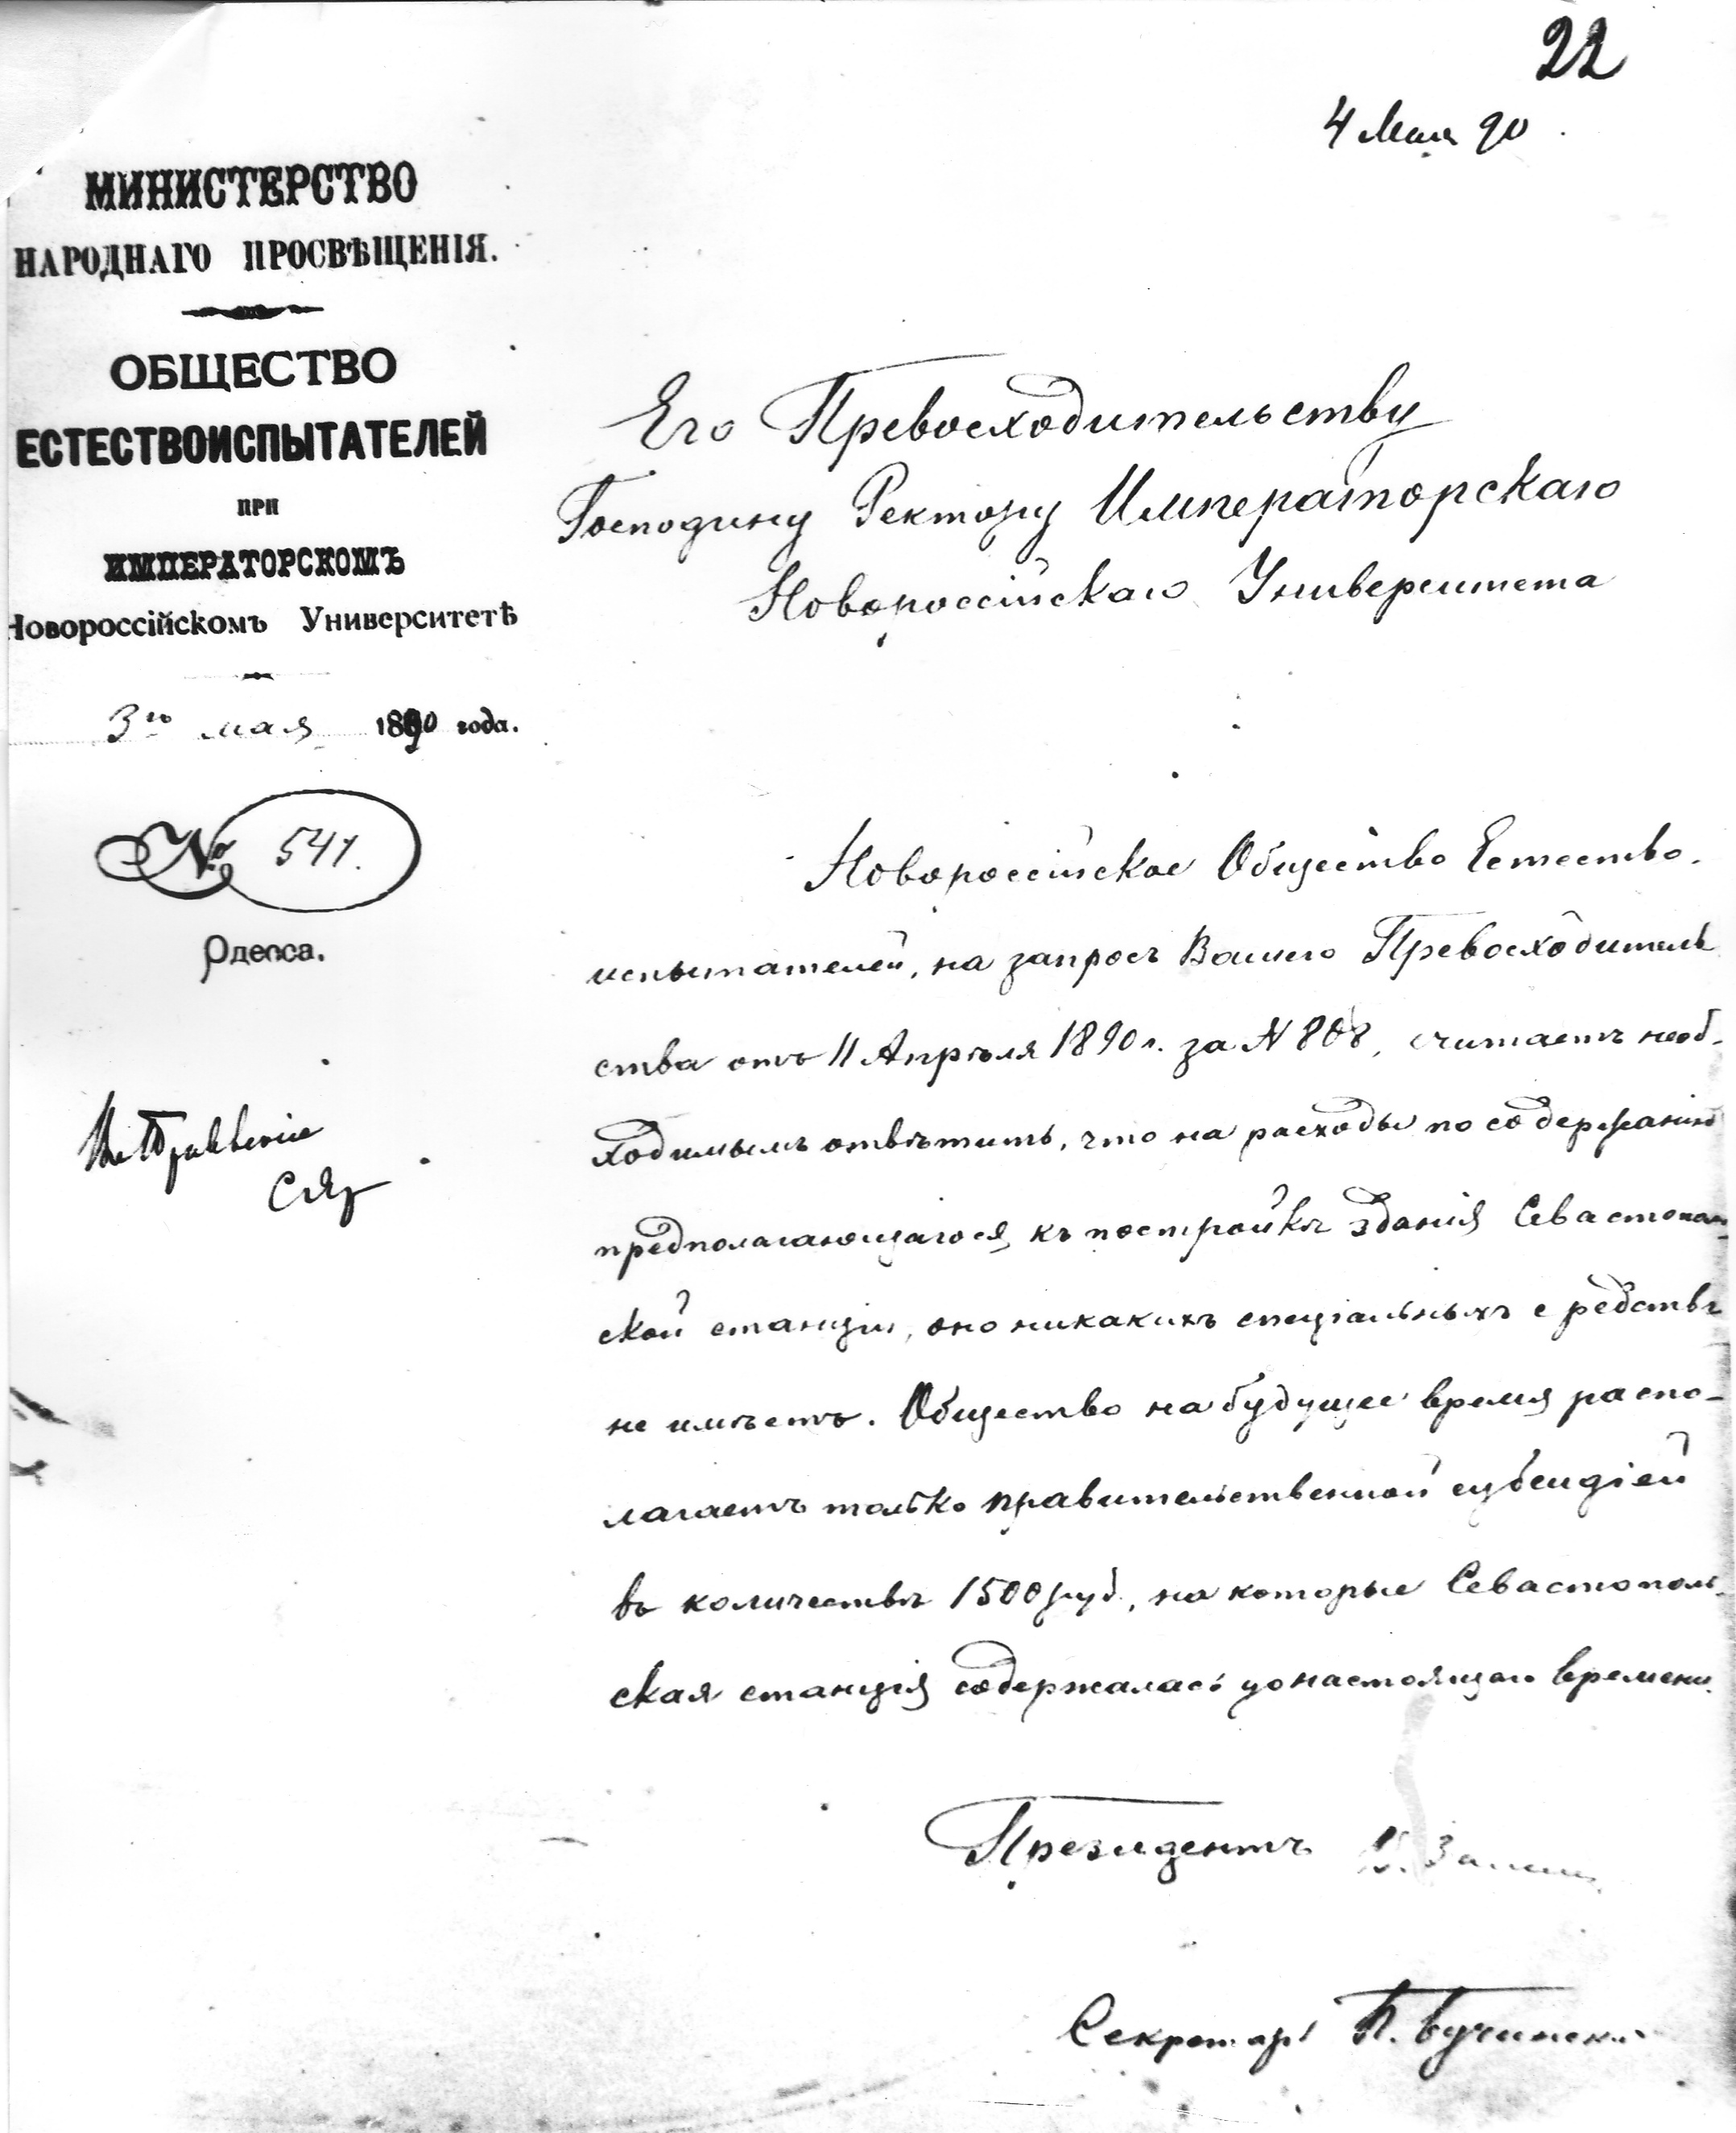 22
4 Мая 90
МИНИСТЕРСТВО
НАРОДНАГО ПРОСВѢЩЕНІЯ.
ОБЩЕСТВО
ЕСТЕСТВОИСПЫТАТЕЛЕЙ
ПРИ
ИМПЕРАТОРСКОМЪ
Новороссійскомъ Университетѣ
3го мая 1890 года.
№ 541.
Одесса.
Въ Правленіе
Его Превосходительству
Господину Ректору Императорскаго
Новороссійскаго Университета
Новороссійское Общество Естество-
испытателей, на запросъ Вашего Превосходитель
ства отъ 11 Апрѣля 1890 г. за N 808, считаетъ необ-
ходимымъ отвѣтить, что на расходы по содержанію
предполагающагося къ постройкѣ зданія Севастополь-
ской станціи, оно никакихъ спеціальныхъ средствъ
не имѣетъ. Общество на будущее время распо-
лагаетъ только правительственной субсидіей
въ количествѣ 1500 руб., на которые Севастополь-
ская станція содержалась до настоящаго времени.
Президентъ
Секретарь П. Бучинскій